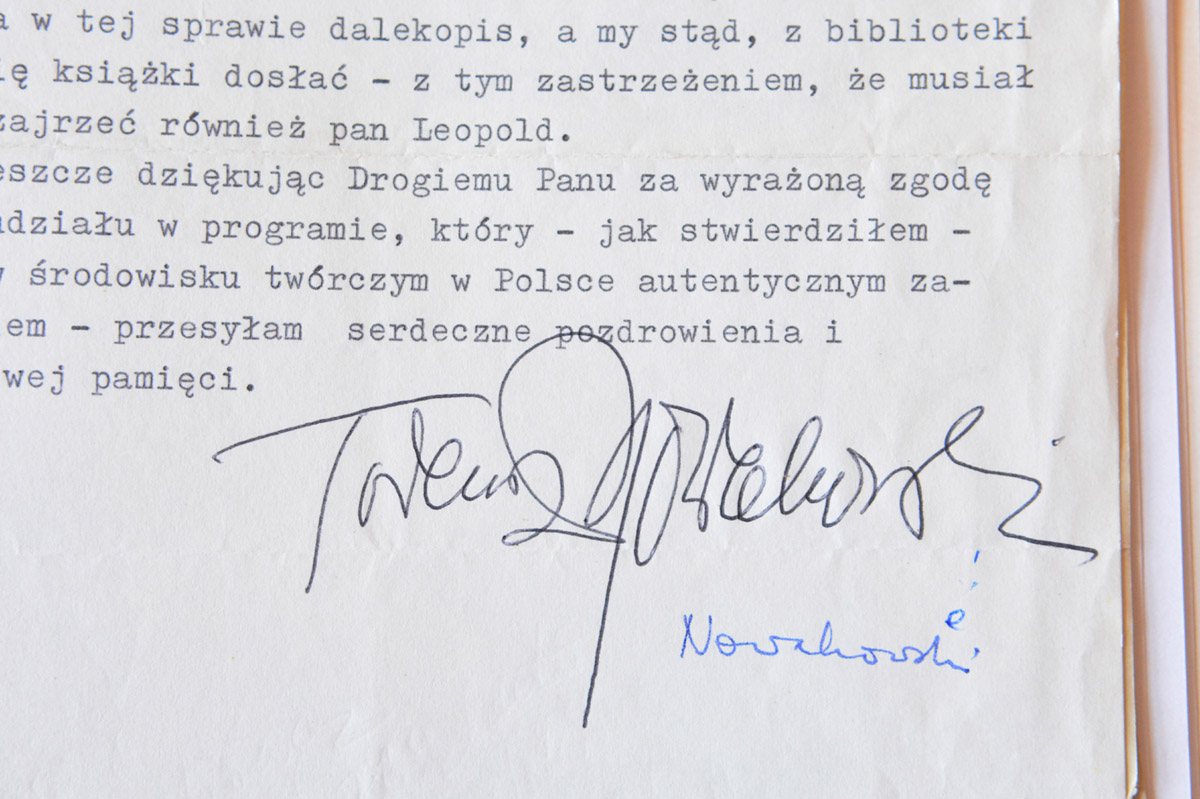 a w tej sprawie dalekopis, a my stąd, z biblioteki
ię książki dosłać - z tym zastrzeżeniem, że musiał
zajrzeć również pan Leopold.
eszcze dziękując Drogiemu Panu za wyrażoną zgodę
udziału w programie, który - jak stwierdziłem -
w środowisku twórczym w Polsce autentycznym za-
iem - przesyłam serdeczne pozdrowienia i
wej pamięci.
Tadeusz Nowakowski
Nowakowski